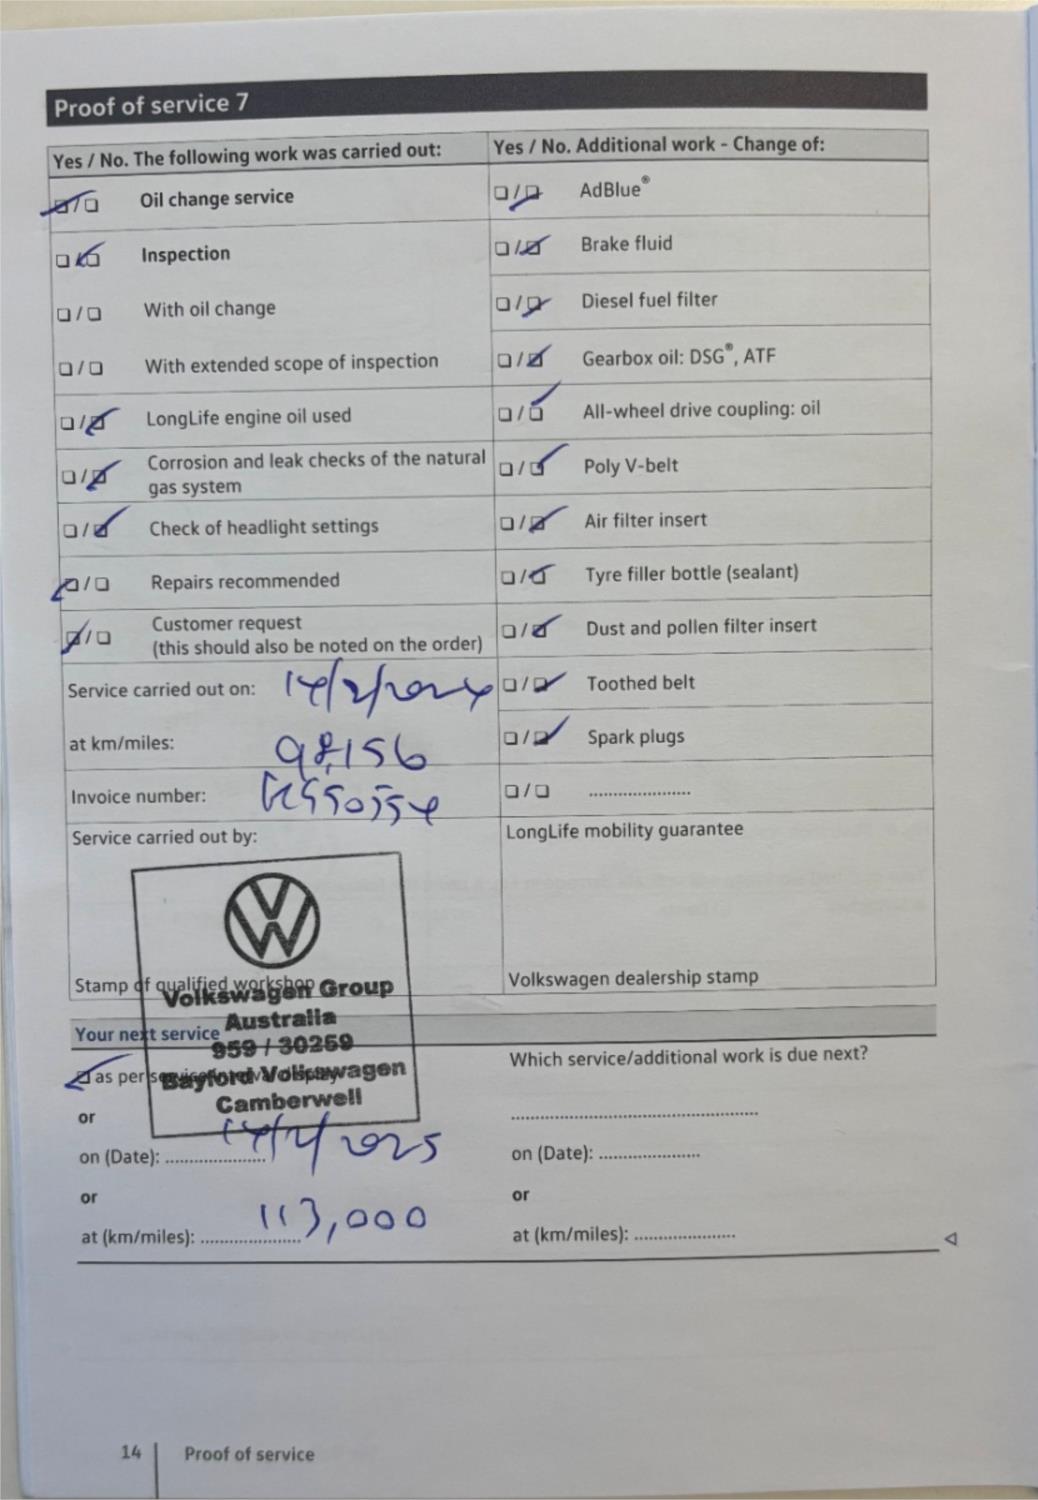 Proof of service 7
Yes / No. The following work was carried out:
☑/☐ Oil change service
☐/☑ Inspection
☐/☐ With oil change
☐/☐ With extended scope of inspection
☐/☑ LongLife engine oil used
☐/☑ Corrosion and leak checks of the natural
gas system
☐/☑ Check of headlight settings
☑/☐ Repairs recommended
☑/☐ Customer request
(this should also be noted on the order)
Service carried out on: 14/2/2024
at km/miles: 98,156
Invoice number:
Service carried out by:
Stamp of qualified workshop
Volkswagen Group
Australia
959 / 30259
Bayford Volkswagen
Camberwell
Yes / No. Additional work - Change of:
☐/☑ AdBlue®
☐/☑ Brake fluid
☐/☑ Diesel fuel filter
☐/☑ Gearbox oil: DSG®, ATF
☐/☑ All-wheel drive coupling: oil
☐/☑ Poly V-belt
☐/☑ Air filter insert
☐/☑ Tyre filler bottle (sealant)
☐/☑ Dust and pollen filter insert
☐/☑ Toothed belt
☐/☑ Spark plugs
☐/☐ ......................
LongLife mobility guarantee
Volkswagen dealership stamp
Your next service
☑ as per service
or
on (Date): 14/2/2025
or
at (km/miles): 113,000
Which service/additional work is due next?
on (Date): ......................
or
at (km/miles): ......................
14 Proof of service